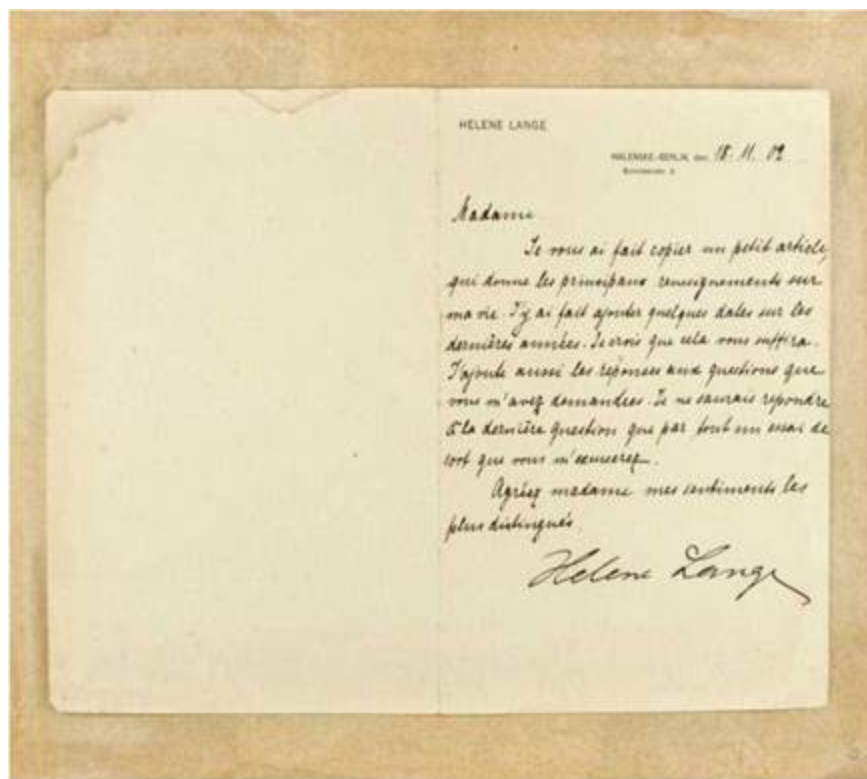 HELENE LANGE
HALENSEE-BERLIN, den 18. 11. 02
Madame.
Je vous ai fait copier un petit article,
qui donne les principaux renseignements sur
ma vie. J'y ai fait ajouter quelques dates sur les
dernières années. Je crois que cela vous suffira.
J'ajoute aussi les réponses aux questions que
vous m'avez demandées. Je ne saurais repondre
à la dernière question que par tout un essai de
sort que vous m'excuserez.
Agréez madame mes sentiments les
plus distingués.
Helene Lange